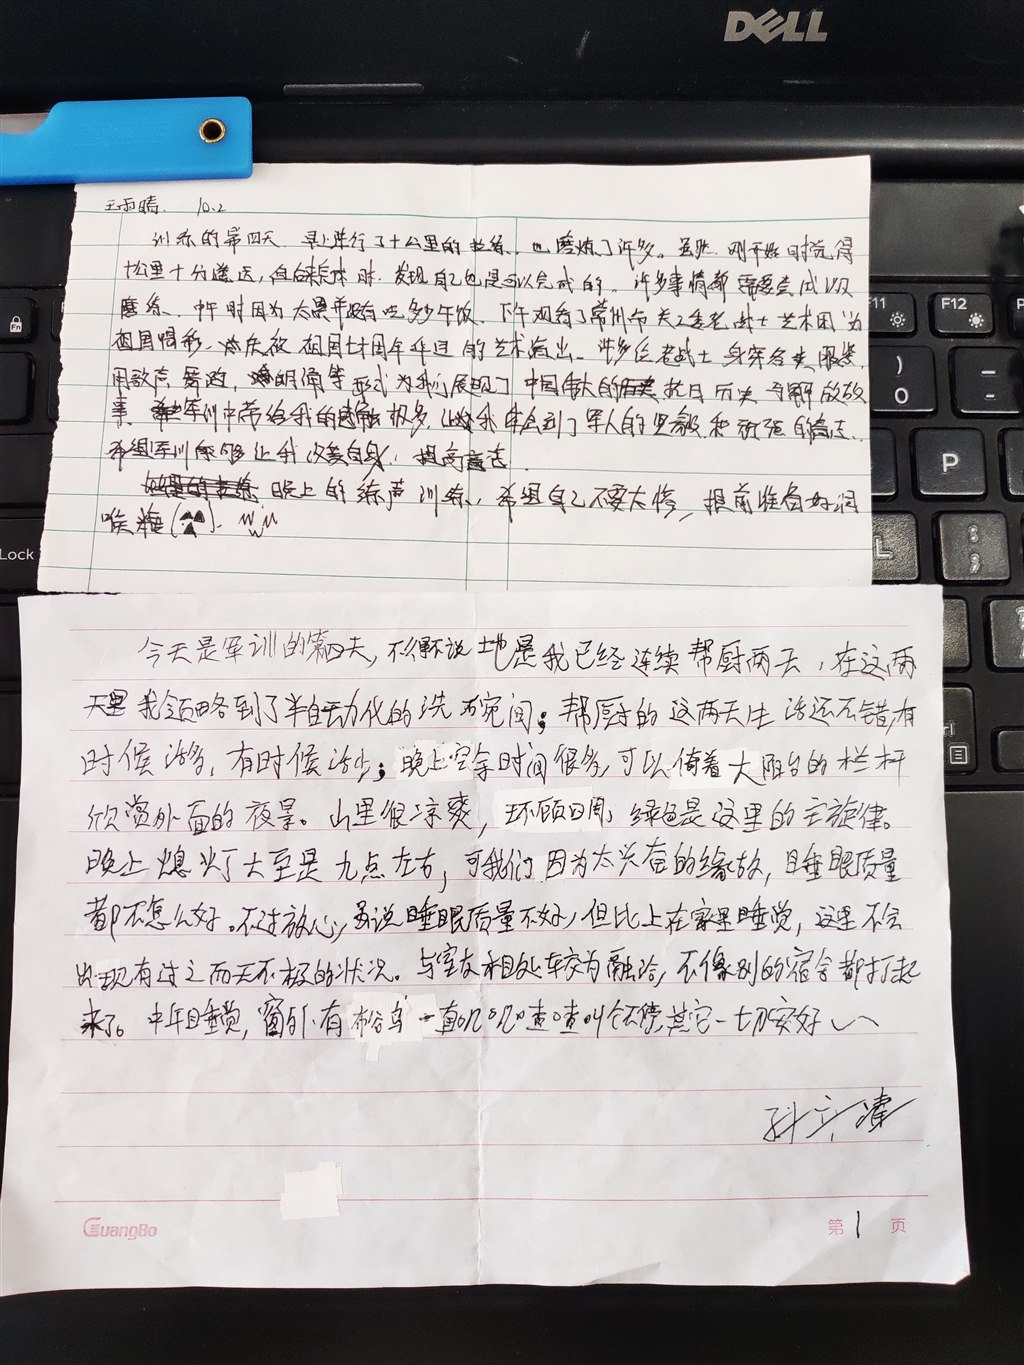 DELL
王雨晴. 10.2
训练的第四天. 早上举行了十公里的拉练, 也磨炼了许多。虽然, 刚开始时觉得
十公里十分遥远, 但 时, 发现自己也是可以完成的。许多事情都需要尝试以及
磨练. 中午时因为太 没有吃多少午饭. 下午观看了常州市关工委老战士艺术团"为
祖国喝彩, 庆祝祖国七十周年华诞的艺术演出. 许多位老战士身穿各类服装,
用歌声、舞蹈, 朗诵等形式为我们展现了中国伟大的 抗日历史与解放故
事. 军训中带给我的 极多, 让我体会到了军人的坚毅和顽强的意志.
希望军训能够让我改变自身, 提高意志.
晚上的练声训练, 希望自己不要太惨, 提前准备好润
喉糖
F11
F12
)
0
-
P
Fn
Lock
L
:
;
今天是军训的第四天, 不得不说地是我已经连续帮厨两天, 在这两
天里我领略到了半自动化的洗碗间; 帮厨的这两天生活还不错, 有
时候活多, 有时候活少; 晚上空余时间很多, 可以倚着大阳台的栏杆
欣赏外面的夜景。山里很凉爽, 环顾四周, 绿色是这里的主旋律。
晚上熄火丁大至是九点左右, 可我们因为太兴奋的缘故, 睡眠质量
都不怎么好。不过放心, 虽说睡眠质量不好, 但比上在家里睡觉, 这里不会
出现有过之而无不极的状况。与室友相处较为融洽, 不像别的宿舍都打起
来了。中午睡觉, 窗外有布谷鸟一直叽叽喳喳叫个不停, 其它一切安好
GuangBo
第 1 页